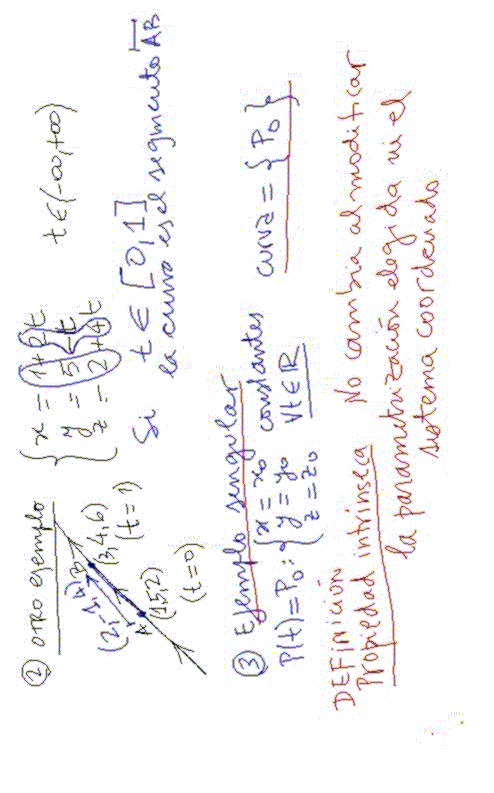 ② OTRO EJEMPLO
{ x = 1+2t
y = 5-t
z = 2+4t
t ∈ (-∞,+∞)
(2,-1,4)
B
(3,4,6)
(t=1)
A
(1,5,2)
(t=0)
Si t ∈ [0,1]
la curva es el segmento AB
③ Ejemplo singular
P(t)=P₀: { x = x₀
y = y₀
z = z₀
constantes
∀t∈ℝ
curva = {P₀}
DEFINICIÓN
Propiedad intrínseca No cambia al modificar
la parametrización elegida ni el
sistema coordenado